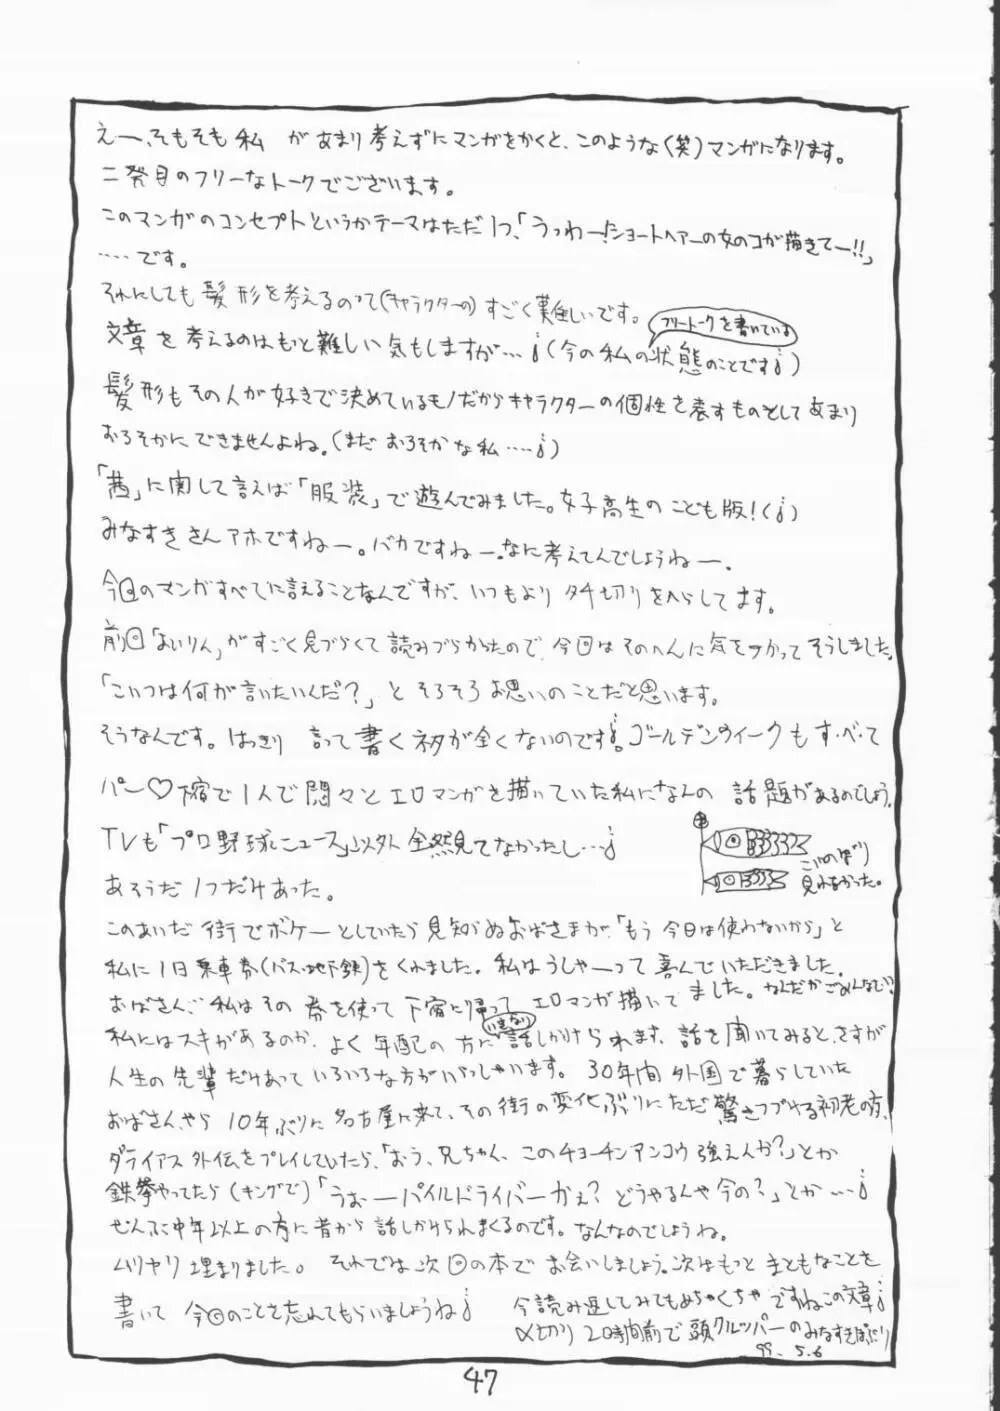 えー、そもそも私 があまり考えずにマンガをかくと、このような(笑)マンガになります。
二発目のフリーなトークでございます。
このマンガのコンセプトというかテーマはただ1つ、「うっわー!ショートヘアーの女のコが描きてー!!」
……です。
それにしても髪形を考えるのって(キャラクターの)すごく難しいです。
フリートークを書いている
文章を考えるのはもっと難しい気もしますが…(今の私の状態のことです)
髪形もその人が好きで決めているモノだからキャラクターの個性を表すものとしてあまり
おろそかにできませんよね。(まだおろそかな私……)
「茜」に関して言えば「服装」で遊んでみました。女子高生のこども版!()
みなすきさんアホですねー。バカですねー。なに考えてんでしょうねー。
今回のマンガすべてに言えることなんですが、いつもよりタチ切りをへらしてます。
前回「よいりん」がすごく見づらくて読みづらかったので、今回はそのへんに気をつかってそうしました。
「こいつは何が言いたいんだ?」とそろそろお思いのことだと思います。
そうなんです。はっきり言って書くネタが全くないのです。ゴールデンウィークもす・べ・て
パー♡下宿で1人で悶々とエロマンガを描いていた私になんの話題があるのでしょう。
TVも「プロ野球ニュース」以外全然見てなかったし…
こいのぼり
見れなかった。
あそうだ1つだけあった。
このあいだ街でボケーとしていたら見知らぬおばさまが、「もう今日は使わないから」と
私に1日乗車券(バス・地下鉄)をくれました。私はうしゃーって喜んでいただきました。
おばさん、私はその券を使って下宿に帰ってエロマンガ描いてました。なんだかごめんなさい
私にはスキがあるのか、よく年配の方にいきなり話しかけられます。話を聞いてみると、さすが
人生の先輩だけあっていろいろな方がいらっしゃいます。30年間外国で暮らしていた
おばさんやら10年ぶりに名古屋に来て、その街の変化ぶりにただ驚きつづける初老の方、
ダライアス外伝をプレイしていたら、「おう、兄ちゃん、このチョーチンアンコウ強えんか?」とか
鉄拳やってたら(キングで)「うぉーパイルドライバーかぇ?どうやるんや今の?」とか…
ぜんぶ中年以上の方に昔から話しかけられまくるのです。なんなのでしょうね。
ムリヤリ埋まりました。それでは次回の本でお会いしましょう。次はもっとまともなことを
書いて今回のことを忘れてもらいましょうね
今読み返してみてもめちゃくちゃですねこの文章
〆切り20時間前で頭クルッパーのみなすきぽぷり
99. 5.6
47